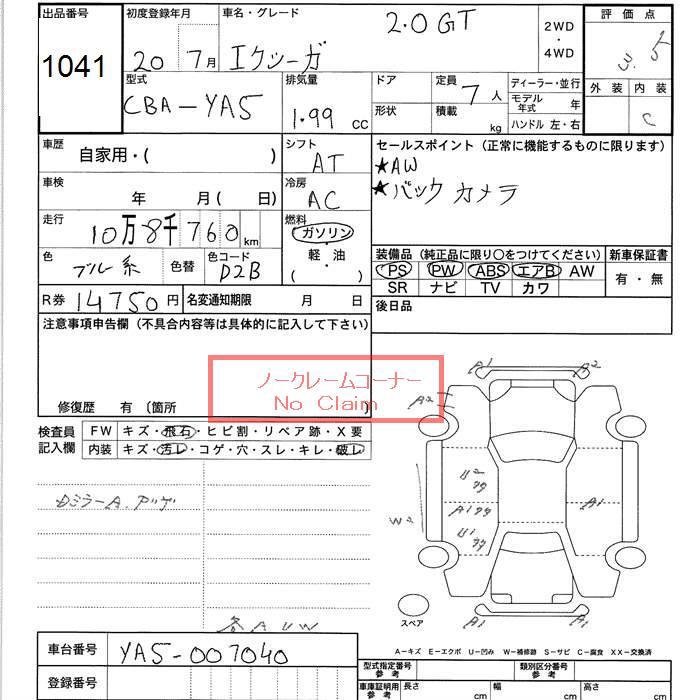 出品番号 初度登録年月 車名・グレード 2WD ・ 4WD 評価点
1041 20 7月 エクシーガ 2.0GT 3.5
型式 排気量 ドア 定員 7人 ディーラー・並行 外装 内装
CBA-YA5 1.99 cc 形状 積載 kg モデル年式 年 C
ハンドル 左・右
車歴 自家用・( ) シフト AT セールスポイント(正常に機能するものに限ります)
★AW
★バックカメラ
車検 年 月( 日) 冷房 AC
走行 10万8千760km 燃料 ガソリン・軽・油 ( )
色 ブルー系 色替 色コード D2B
装備品(純正品に限り○をつけてください) 新車保証書
PS PW ABS エアB AW 有・無
SR ナビ TV カワ
R券 14750円 名変通知期限 月 日 後日品
注意事項申告欄(不具合内容等は具体的に記入して下さい)
ノークレームコーナー
No Claim
修復歴 有 〔箇所
検査員記入欄 FW キズ・飛石・ヒビ割・リペア跡・X要
内装 キズ・汚レ・コゲ・穴・スレ・キレ・破レ
A1 A2
A2
U2
A1
U1
W2
A1
A1 A1
各AUW
スペア
A-キズ E-エクボ U-凹み W-補修跡 S-サビ C-腐食 XX-交換済
車台番号 YA5-007040
登録番号
型式指定番号 参考 類別区分番号 参考
車庫証明用 参考 長さ cm 幅 cm 高さ cm